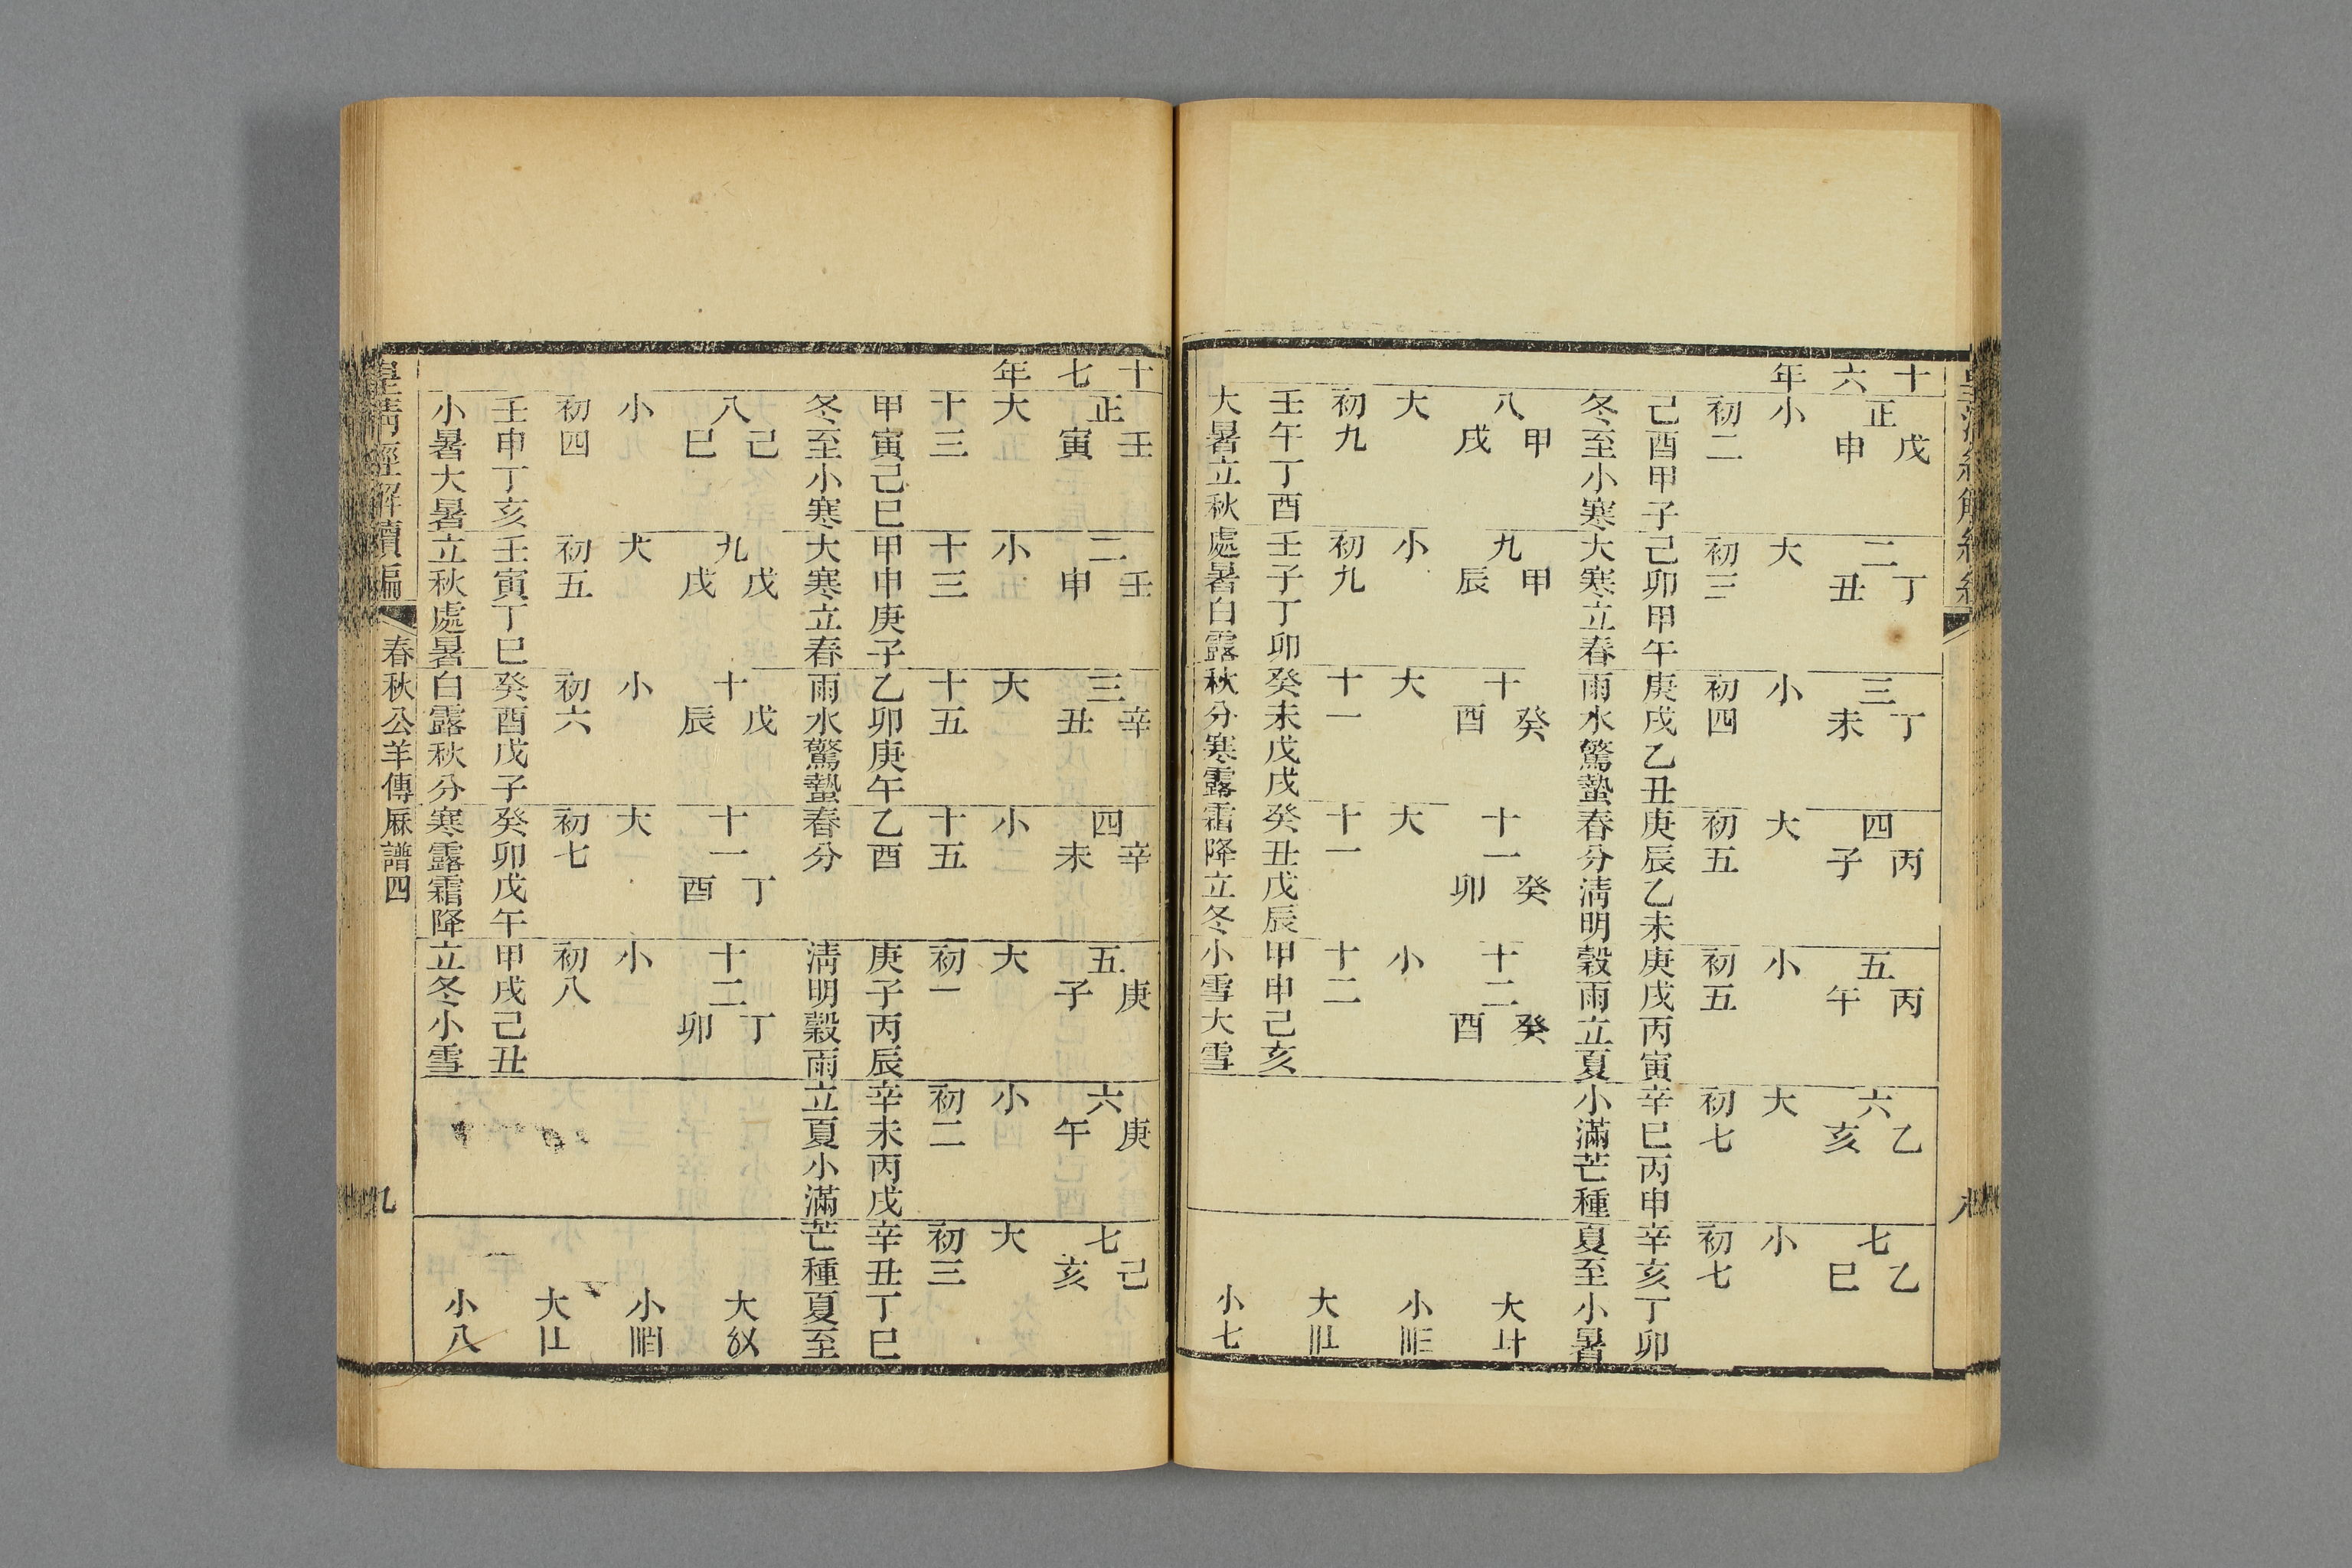 十六年
正戊申 二丁丑 三丁未 四丙子 五丙午 六乙亥 七乙巳
小 大 小 大 小 大 小
初二 初三 初四 初五 初五 初七 初七
己酉甲子 己卯甲午 庚戌乙丑 庚辰乙未 庚戌丙寅 辛巳丙申 辛亥丁卯
冬至小寒 大寒立春 雨水驚蟄 春分清明 穀雨立夏 小滿芒種 夏至小暑
八甲戌 九甲辰 十癸酉 十一癸卯 十二癸酉 大
大 小 大 大 小 小
初九 初九 十一 十一 十二 大
壬午丁酉 壬子丁卯 癸未戊戌 癸丑戊辰 甲申己亥
大暑立秋 處暑白露 秋分寒露 霜降立冬 小雪大雪 小七
十七年
正壬寅 二壬申 三辛丑 四辛未 五庚子 六庚午 七己亥
大 小 大 小 大 小 大
十三 十三 十五 十五 初一 初二 初三
甲寅己巳 甲申庚子 乙卯庚午 乙酉 庚子丙辰 辛未丙戌 辛丑丁巳
冬至小寒 大寒立春 雨水驚蟄 春分 清明穀雨 立夏小滿 芒種夏至
八己巳 九戊戌 十戊辰 十一丁酉 十二丁卯 大
小 大 小 大 小 小
初四 初五 初六 初七 初八 大
壬申丁亥 壬寅丁巳 癸酉戊子 癸卯戊午 甲戌己丑
小暑大暑 立秋處暑 白露秋分 寒露霜降 立冬小雪 小八
皇清經解續編 春秋公羊傳厤譜四 九